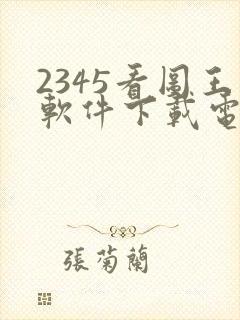 2345看图王
軟件下載電
張菊蘭